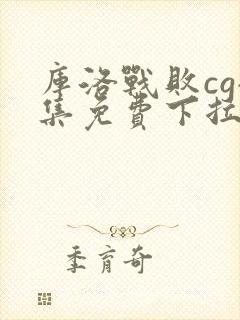 庫洛戰敗cg
集免費下拉
季育奇